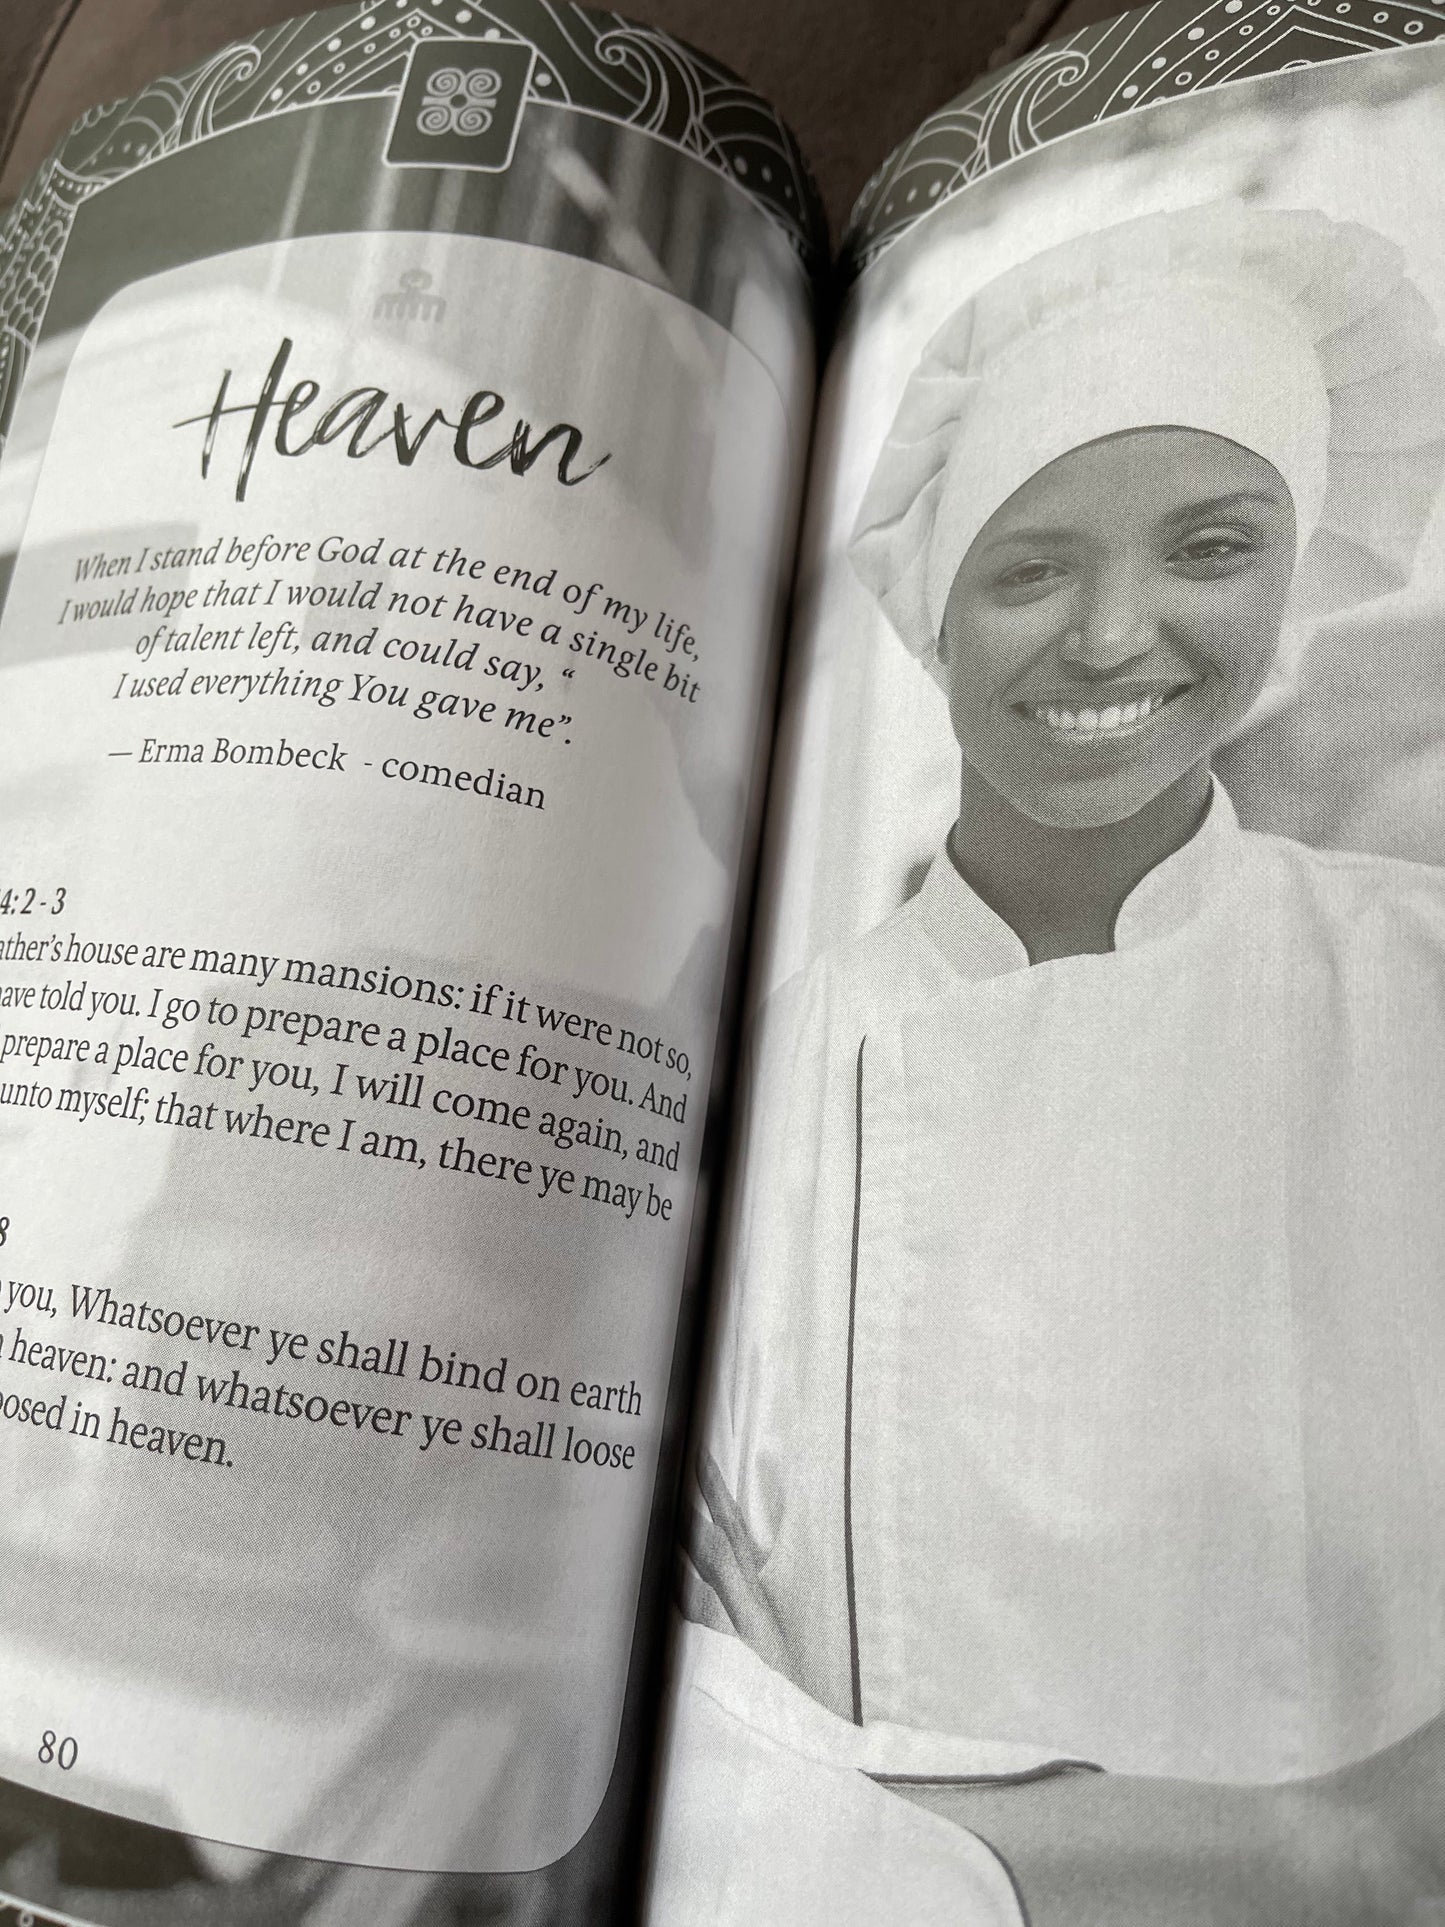 Heaven
When I stand before God at the end of my life,
I would hope that I would not have a single bit
of talent left, and could say, “
I used everything You gave me”.
— Erma Bombeck - comedian
4:2 - 3
ather’s house are many mansions: if it were not so,
ave told you. I go to prepare a place for you. And
prepare a place for you, I will come again, and
unto myself; that where I am, there ye may be
8
you, Whatsoever ye shall bind on earth
heaven: and whatsoever ye shall loose
oosed in heaven.
80